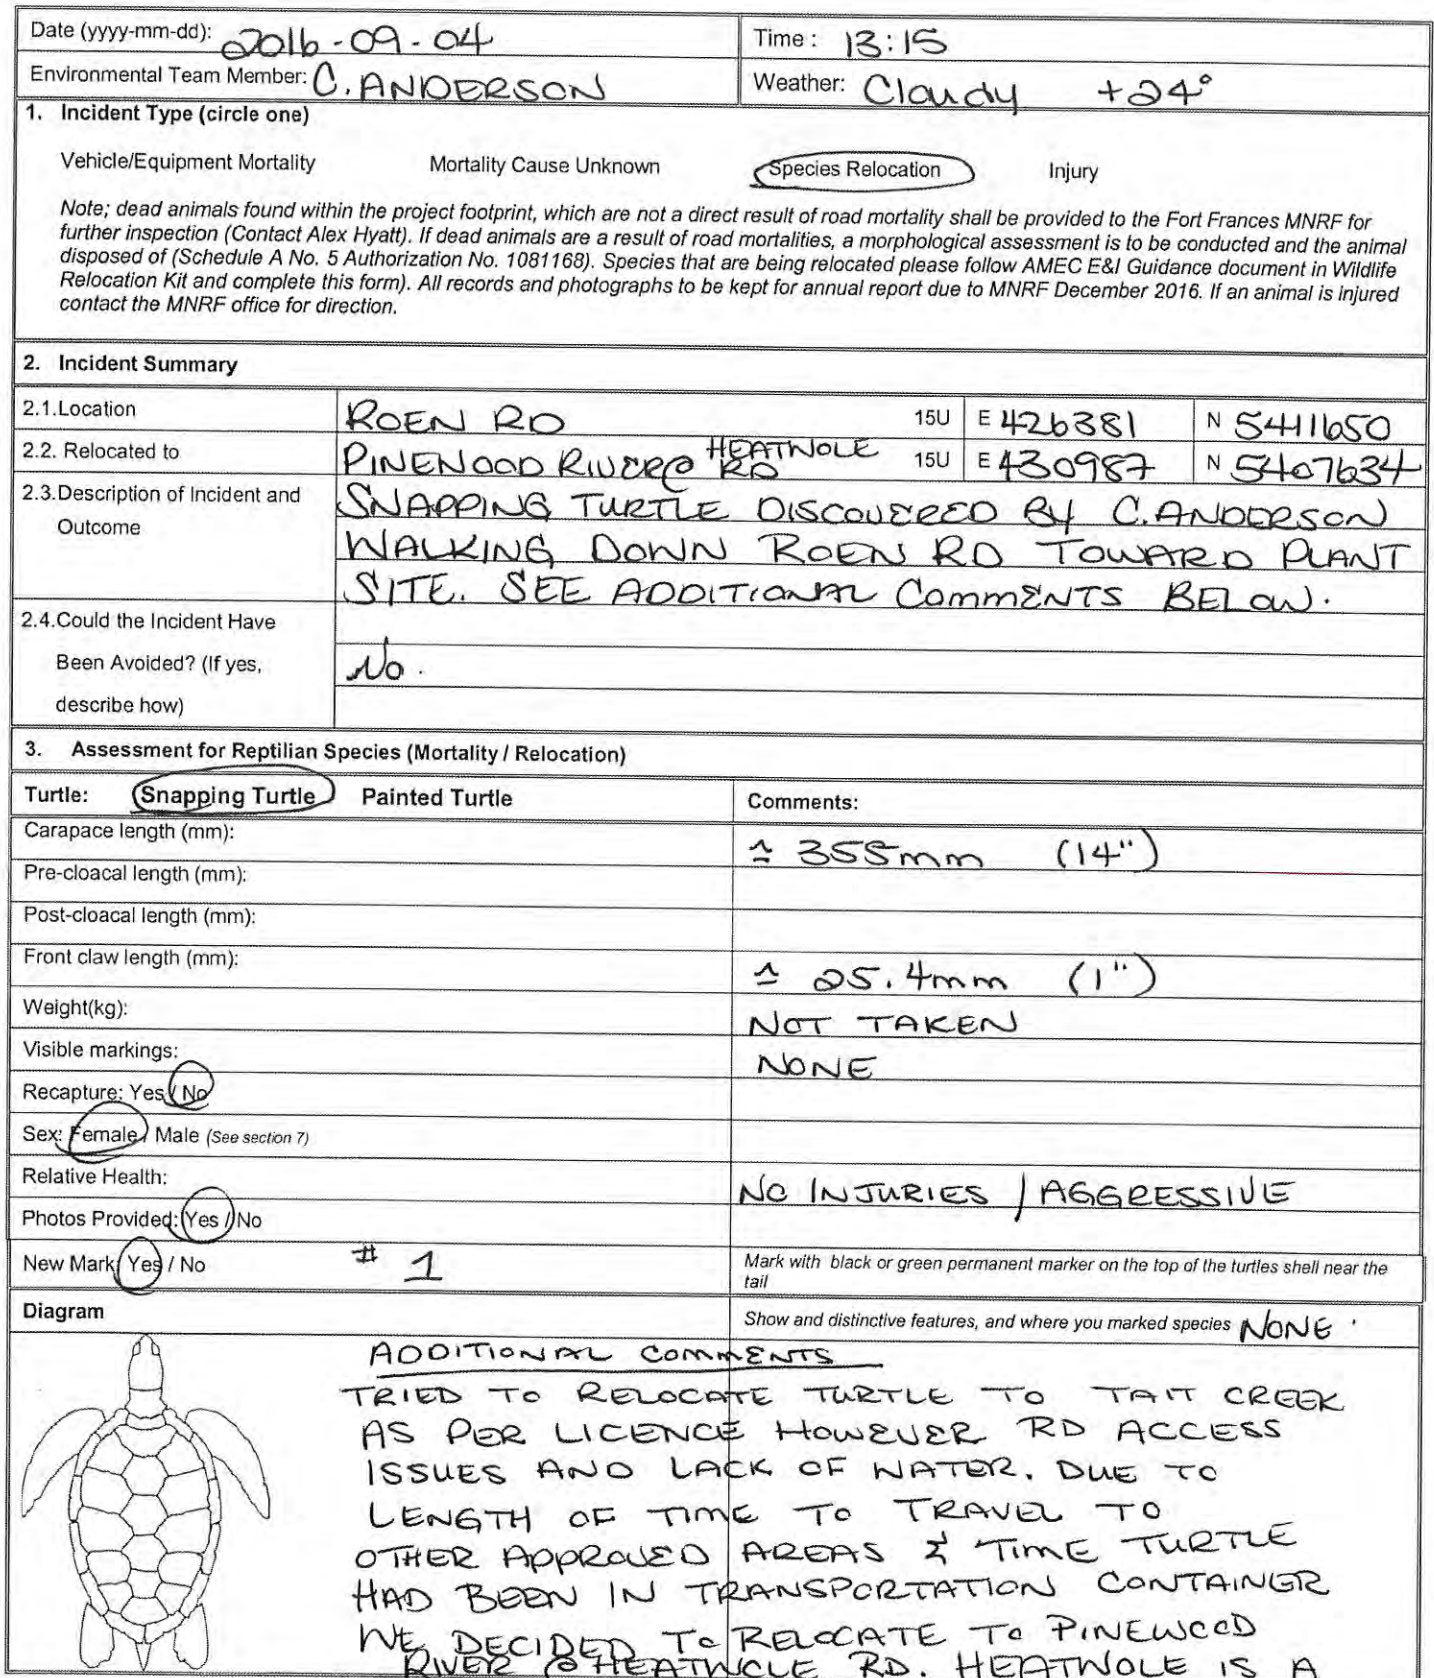 Date (yyyy-mm-dd): 2016-09-04 Time : 13:15
Environmental Team Member: C. ANDERSON Weather: Cloudy +24°
1. Incident Type (circle one)
Vehicle/Equipment Mortality Mortality Cause Unknown Species Relocation Injury
Note; dead animals found within the project footprint, which are not a direct result of road mortality shall be provided to the Fort Frances MNRF for
further inspection (Contact Alex Hyatt). If dead animals are a result of road mortalities, a morphological assessment is to be conducted and the animal
disposed of (Schedule A No. 5 Authorization No. 1081168). Species that are being relocated please follow AMEC E&I Guidance document in Wildlife
Relocation Kit and complete this form). All records and photographs to be kept for annual report due to MNRF December 2016. If an animal is injured
contact the MNRF office for direction.
2. Incident Summary
2.1.Location ROEN RD 15U E 426381 N 5411650
2.2. Relocated to PINEWOOD RIVER @ HEATWOLE RD 15U E 430987 N 5407634
2.3.Description of Incident and Outcome
SNAPPING TURTLE DISCOVERED BY C.ANDERSON
WALKING DOWN ROEN RD TOWARD PLANT
SITE. SEE ADDITIONAL COMMENTS BELOW.
2.4.Could the Incident Have
Been Avoided? (If yes, No.
describe how)
3. Assessment for Reptilian Species (Mortality / Relocation)
Turtle: Snapping Turtle Painted Turtle Comments:
Carapace length (mm): ≙ 355mm (14")
Pre-cloacal length (mm):
Post-cloacal length (mm):
Front claw length (mm): ≙ 25.4mm (1")
Weight(kg): NOT TAKEN
Visible markings: NONE
Recapture: Yes / No
Sex: Female / Male (See section 7)
Relative Health: NO INJURIES / AGGRESSIVE
Photos Provided: Yes / No
New Mark Yes / No # 1 Mark with black or green permanent marker on the top of the turtles shell near the
tail
Diagram Show and distinctive features, and where you marked species NONE.
ADDITIONAL COMMENTS
TRIED TO RELOCATE TURTLE TO TAIT CREEK
AS PER LICENCE HOWEVER RD ACCESS
ISSUES AND LACK OF WATER. DUE TO
LENGTH OF TIME TO TRAVEL TO
OTHER APPROVED AREAS & TIME TURTLE
HAD BEEN IN TRANSPORTATION CONTAINER
WE DECIDED TO RELOCATE TO PINEWOOD
RIVER @ HEATWOLE RD. HEATWOLE IS A